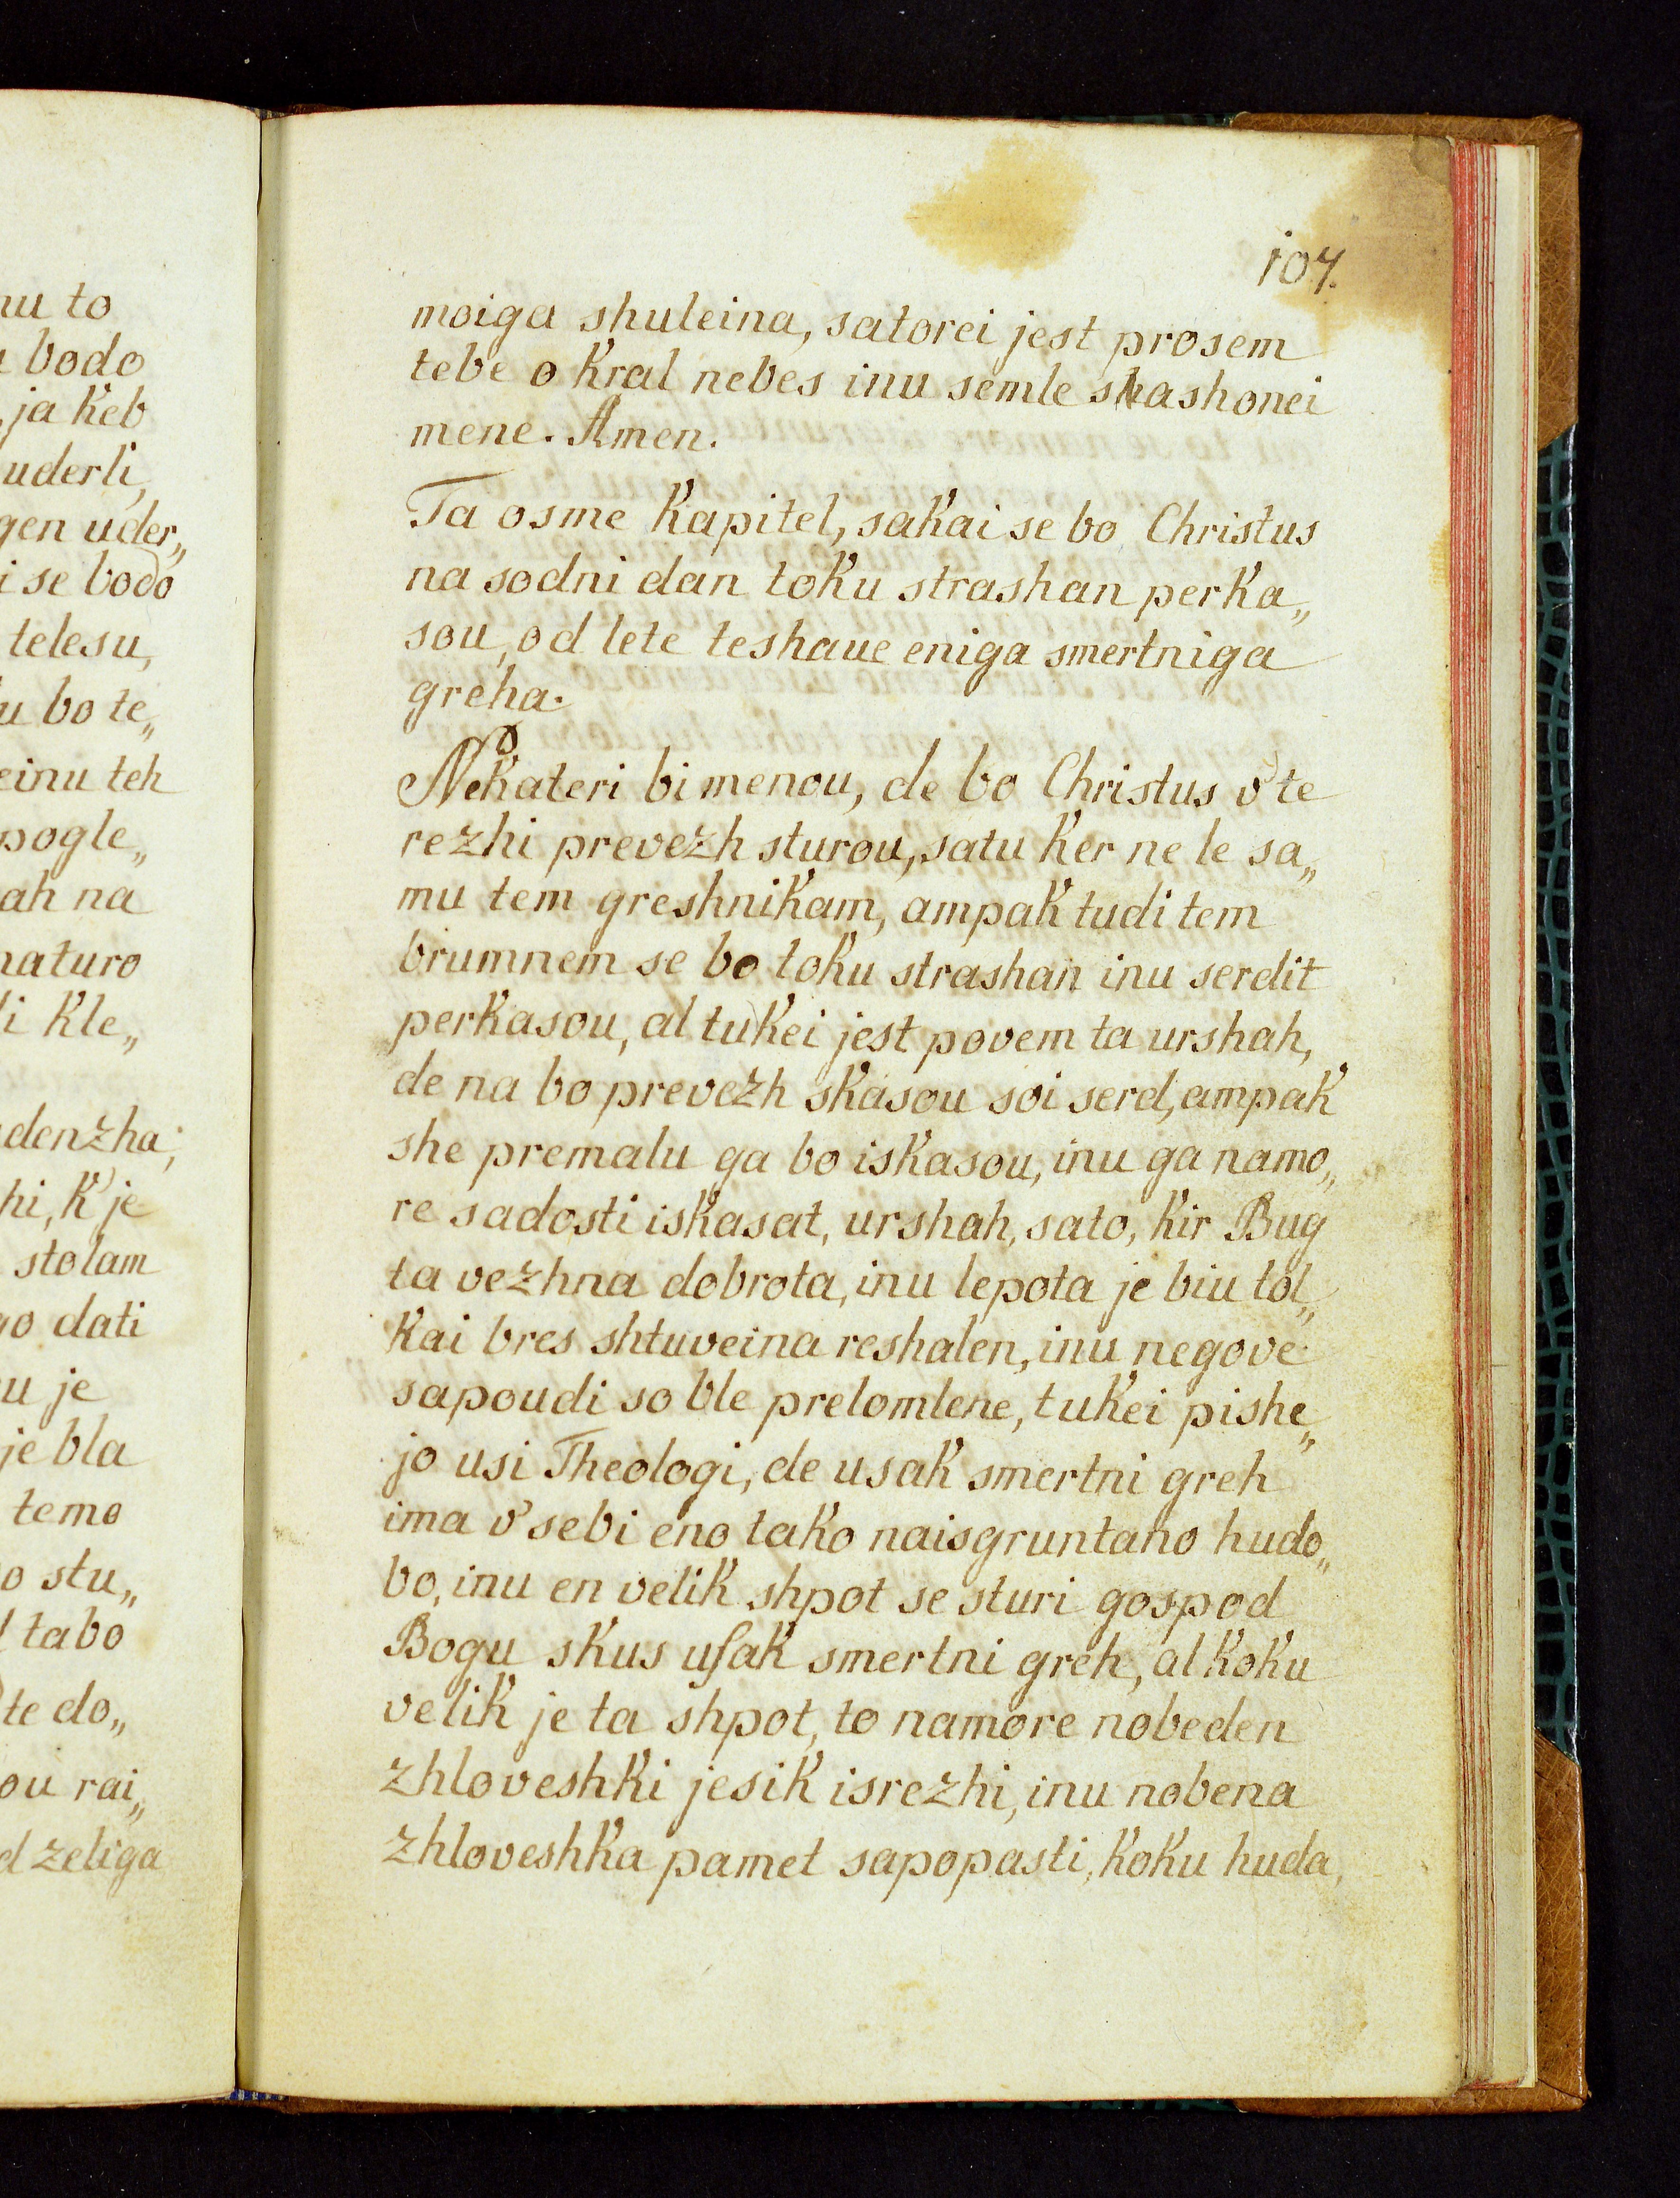 nu to
bodo
ja keb
uderli,
gen uder„
i se bodo
telesu,
u bo te„
einu teh
pogle„
ah na
naturo
li kle„
denzha;
hi, k'je
stolam
go dati
u je
je bla
temo
o stu„
tabo
te do„
ou rai„
d zeliga
107.
moiga shuleina, satorei jest prosem
tebe o kral nebes inu semle shashonei
mene. Amen.
Ta osme kapitel, sakai se bo Christus
na sodni dan toku strashan perka„
sou, od lete teshaue eniga smertniga
greha.
Nekateri bi menou, de bo Christus v'te
rezhi prevezh sturou, satu ker ne le sa„
mu tem greshnikam, ampak tudi tem
brumnem se bo toku strashan inu serdit
perkasou, al tukei jest povem ta urshah,
de na bo prevezh skasou soi serd, ampak
she premalu ga bo iskasou, inu ga namo„
re sadosti iskasat, urshah, sato, kir Bug
ta vezhna dobrota, inu lepota je biu tol„
kai bres shtuveina reshalen, inu negove
sapoudi so ble prelomlene, tukei pishe„
jo usi Theologi, de usak smertni greh
ima v'sebi eno tako naisgruntano hudo„
bo, inu en velik shpot se sturi gospod
Bogu skus uſak smertni greh, al koku
velik je ta shpot, to namore nobeden
zhloveshki jesik isrezhi, inu nobena
zhloveshka pamet sapopasti, koku huda,